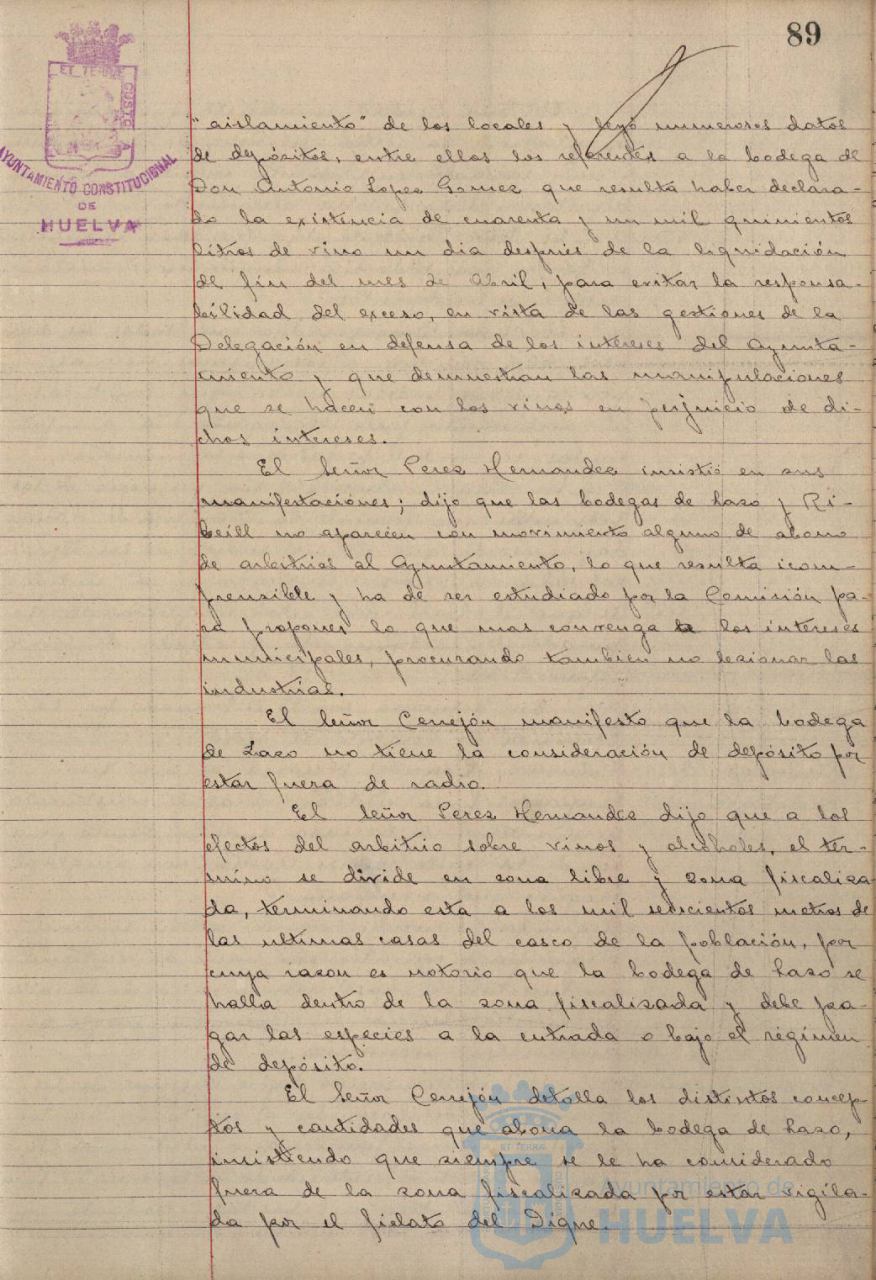 89
ET TERRÆ CUSTOS
AYUNTAMIENTO CONSTITUCIONAL
DE
HUELVA
"aislamiento" de los locales y leyó numerosos datos
de depósitos, entre ellos los referentes a la bodega de
Don Antonio Lopez Gomez que resultá haber declara-
do la existencia de cuarenta y un mil quinientos
litros de vino un dia después de la liquidación
de fin del mes de Abril, para evitar la responsa-
bilidad del exceso, en vista de las gestiones de la
Delegación en defensa de los intereses del Ayunta-
miento y que demuestran las manipulaciones
que se hacen con los vinos en perjuicio de di-
chos intereses.
El Señor Perez Hernandez insistió en sus
manifestaciones; dijo que las bodegas de Lazo y Ri-
beill no aparecen con movimiento alguno de abono
de arbitrios al Ayuntamiento, lo que resulta icom-
prensible y ha de ser estudiado por la Comisión pa-
ra proponer lo que mas convenga a los intereses
municipales, procurando tambien no lesionar las
industrias.
El Señor Cerrejón manifestó que la bodega
de Lazo no tiene la consideración de depósito por
estar fuera de radio.
El Señor Perez Hernandez dijo que a los
efectos del arbitrio sobre vinos y alcoholes, el ter-
mino se divide en zona libre y zona fiscaliza-
da, terminando esta a los mil seiscientos metros de
las ultimas casas del casco de la población, por
cuya razon es notorio que la bodega de Lazo se
halla dentro de la zona fiscalizada y debe pa-
gar las especies a la entrada o bajo el régimen
de depósito.
El Señor Cerrejón detalla los distintos concep-
tos y cantidades que abona la bodega de Lazo,
insistiendo que siempre se le ha considerado
fuera de la zona fiscalizada por estar vigila-
da por el fielato del Dique.
Ayuntamiento de
HUELVA